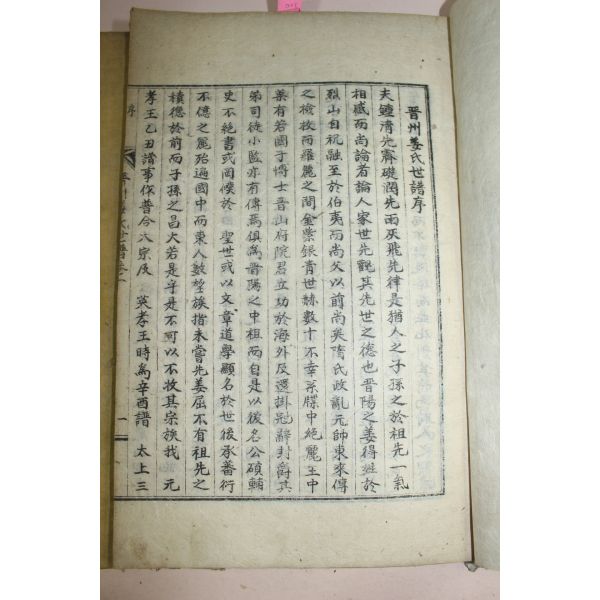 晋州姜氏世譜序
夫鍾清先霽礎潤先雨灰飛先律是猶人之子孫之於祖先一氣
相感而尚論者論人家世先觀其先世之德也晋陽之姜得姓於
烈山自祝融至於伯夷而尚父以前尚矣隋氏政亂元帥東來傳
之檢校而羅麗之間金紫銀青世赫數十不幸系牒中絶麗王中
葉有若國子博士晋山府院君立功於海外及還掛冠辭封爵其
弟司徒小監亦有傳焉鎮爲晋陽之中祖而自是以後名公碩輔
史不絶書或罔僕於 聖世或以文章道學顯名於世後承蕃衍
不億之麗殆遍國中而東人數望族指未嘗先姜屈不有祖先之
積德於前而子孫之昌大若是乎是不可以不收其宗族 元
孝王乙丑譜事作普今大宗及 英孝王時爲辛酉譜 太上三
序
晋州姜氏世譜卷一
一